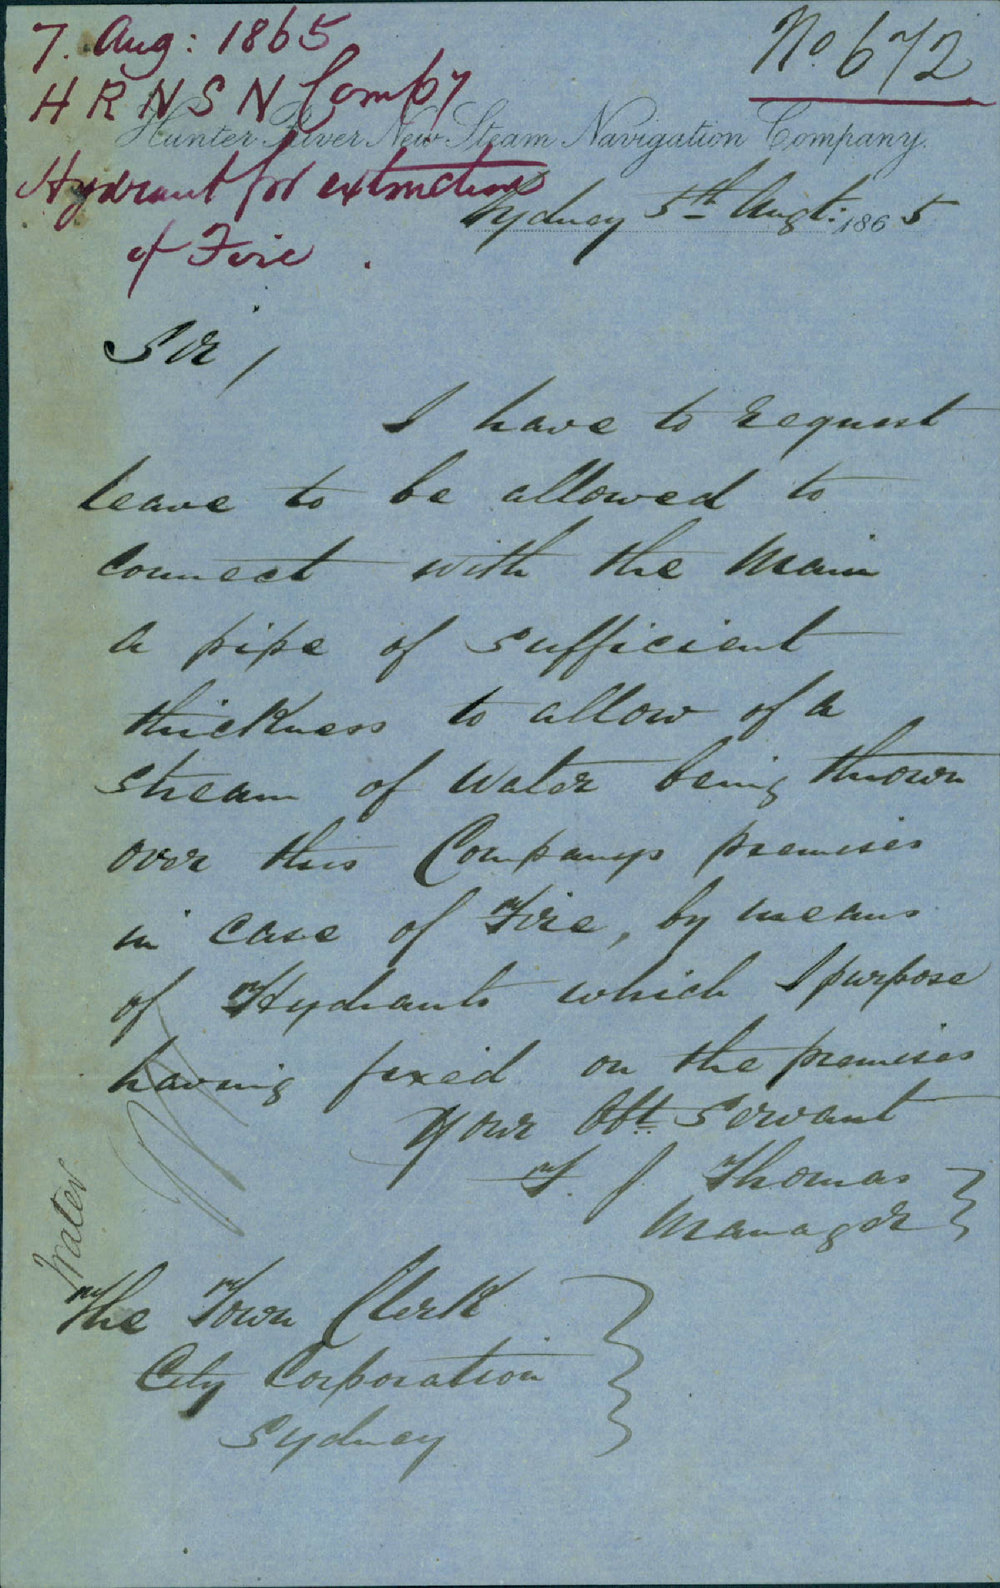 7. Aug: 1865
No. 672
H R N S N Compy
Hunter River New Steam Navigation Company.
Hydrant for extinction
of Fire.
Sydney 5th Augt: 1865
Sir,
I have to request
leave to be allowed to
connect with the Main
a pipe of sufficient
thickness to allow of a
stream of water being thrown
over this Companys premises
in case of Fire, by means
of Hydrants which I purpose
having fixed on the premises
Your Obt. Servant
F. J Thomas
Manager
Water
The Town Clerk
City Corporation
Sydney